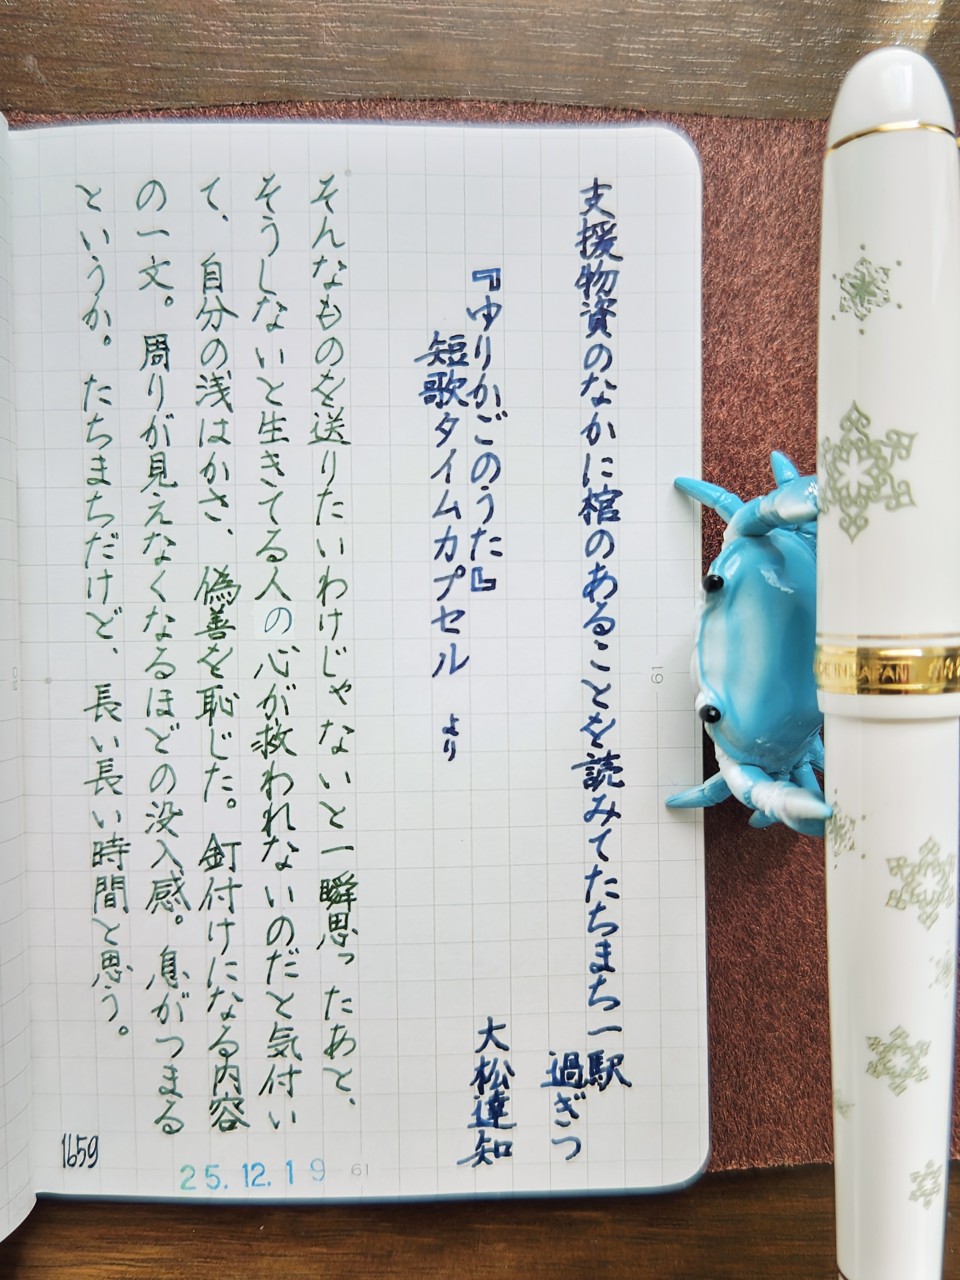 支援物資のなかに棺のあることを読みてたちまち一駅
過ぎつ
『ゆりかごのうた』
大松達知
短歌タイムカプセル より
そんなものを送りたいわけじゃないと一瞬思ったあと、
そうしないと生きてる人の心が救われないのだと気付い
て、自分の浅はかさ、偽善を恥じた。釘付けになる内容
の一文。周りが見えなくなるほどの没入感。息がつまる
というか。たちまちだけど、長い長い時間と思う。
1659
25.12.19
61
61
MADE IN JAPAN